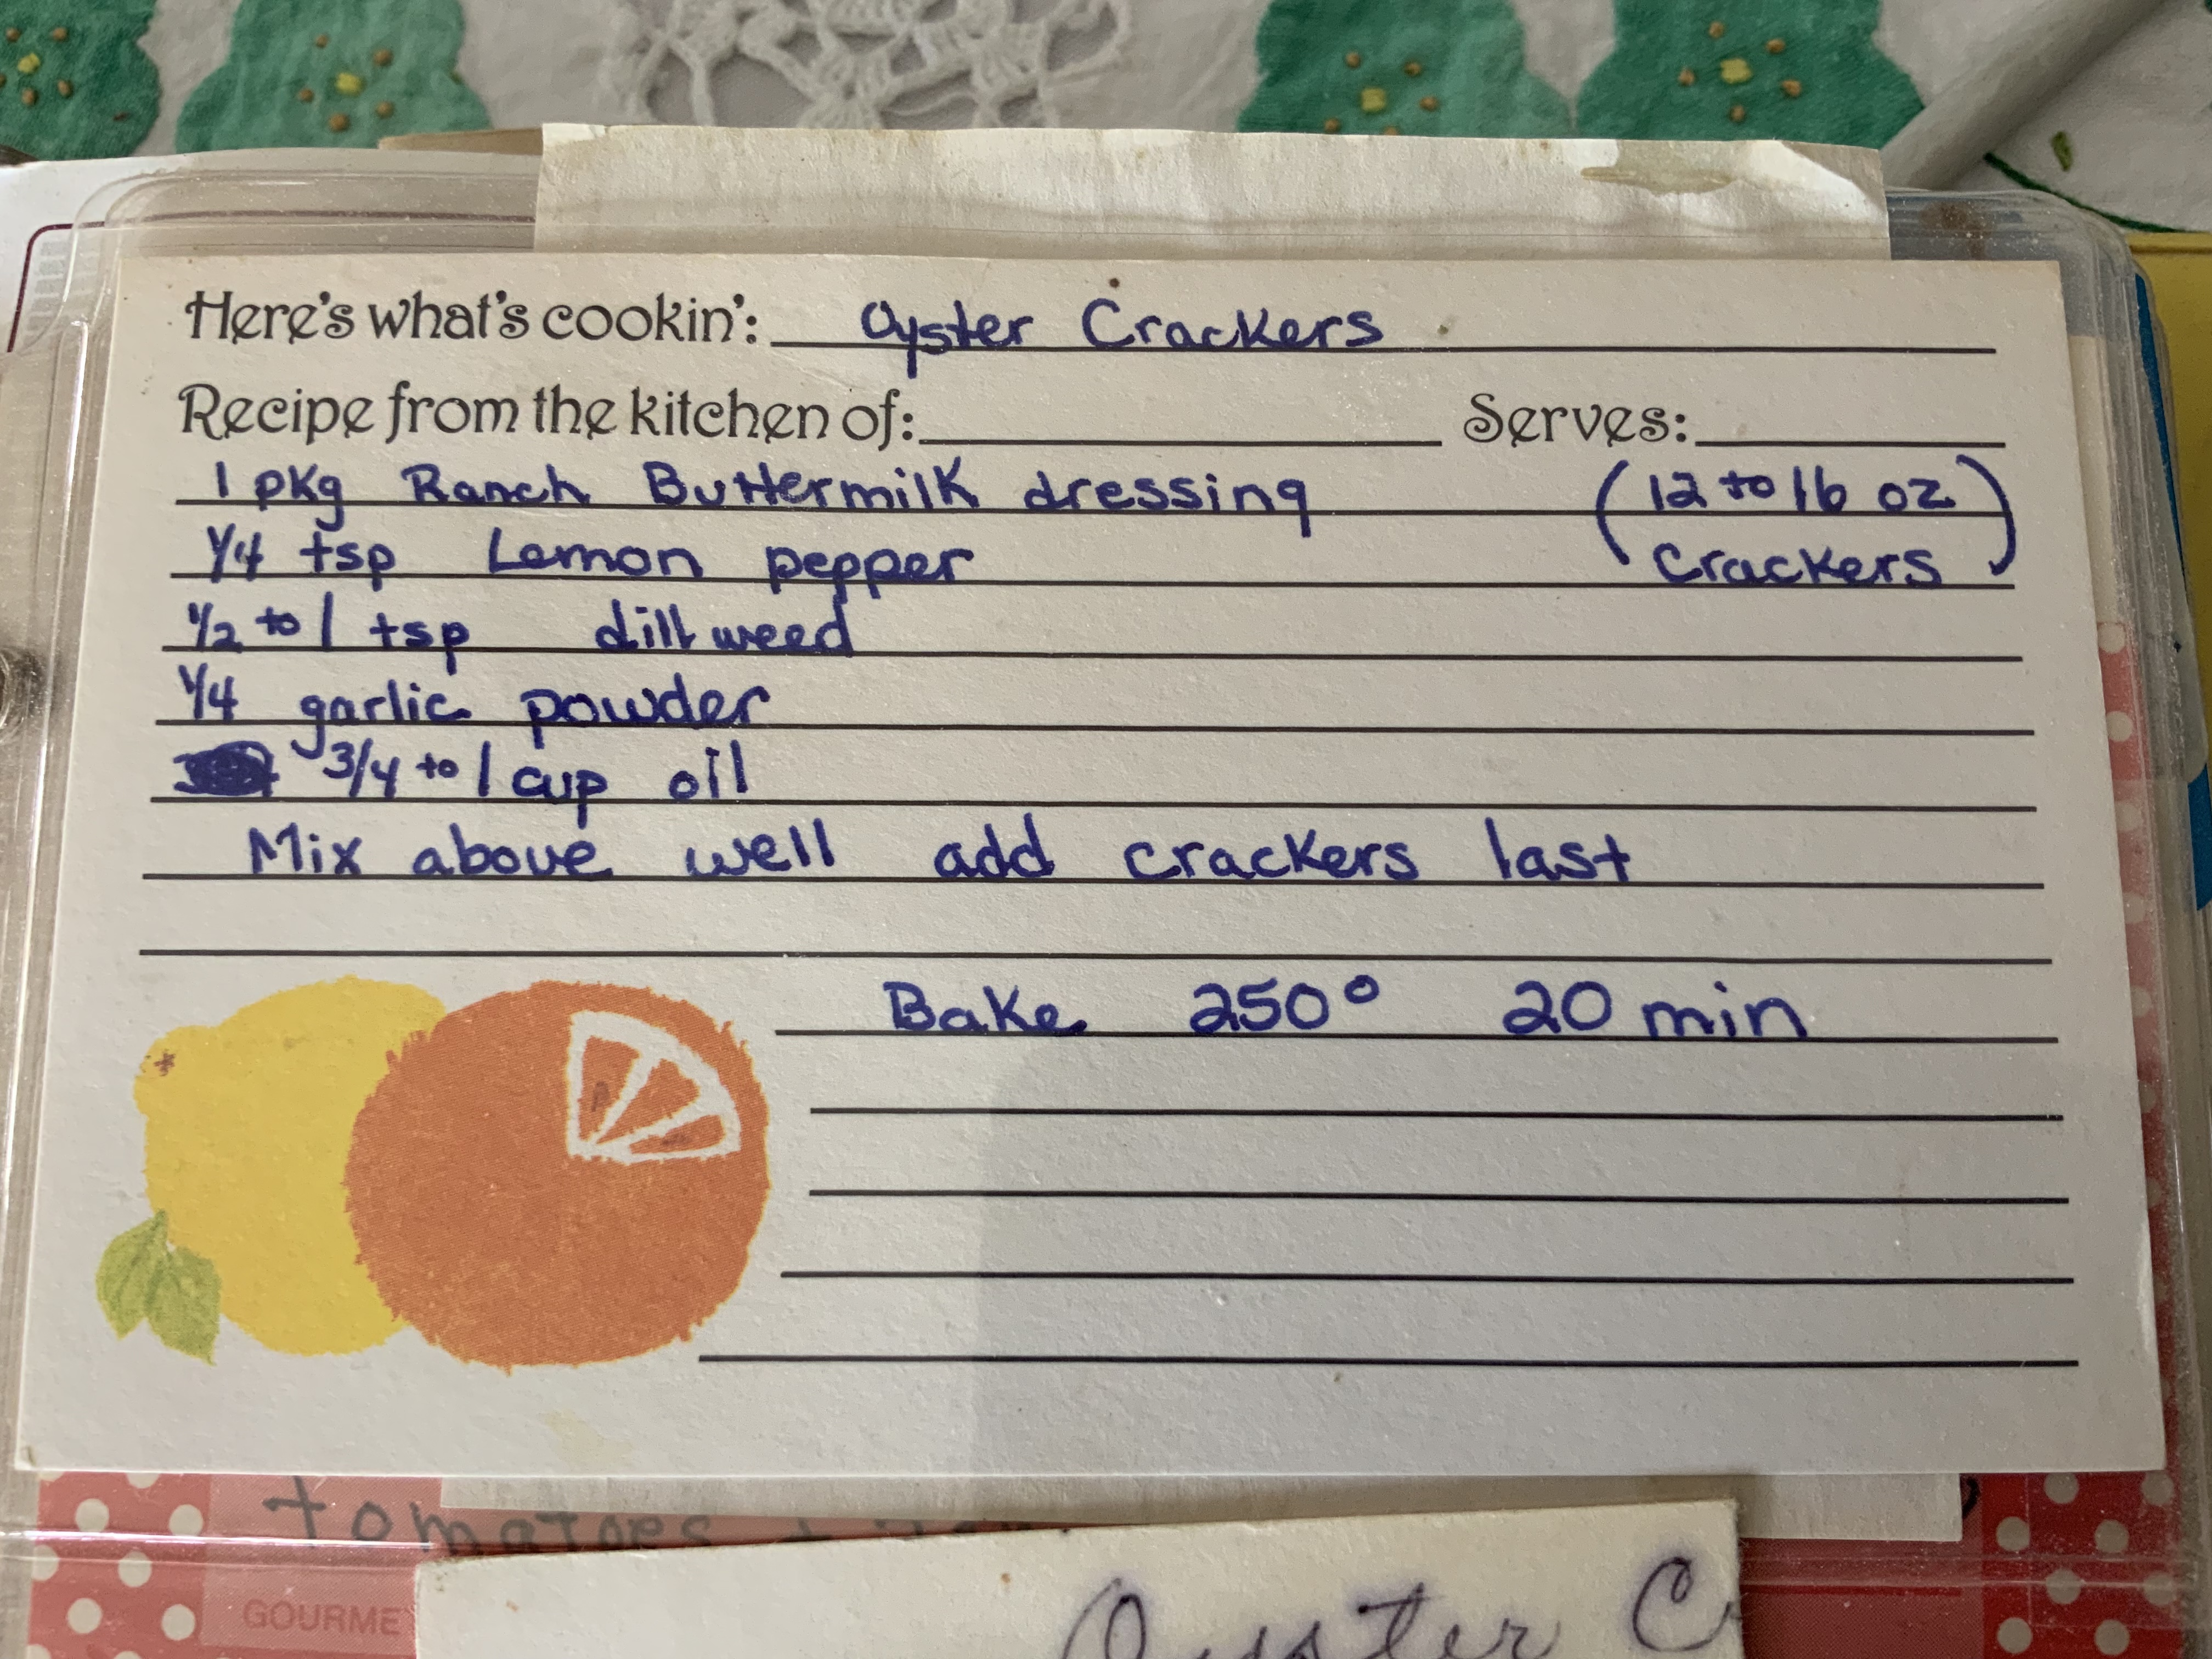 Here's what's cookin': Oyster Crackers
Recipe from the kitchen of: Serves:
1 pkg Ranch Buttermilk dressing (12 to 16 oz
1/4 tsp Lemon pepper crackers)
1/2 to 1 tsp dill weed
1/4 garlic powder
3/4 to 1 cup oil
Mix above well add crackers last
Bake 250° 20 min
tomatoes
GOURME
Oyster C